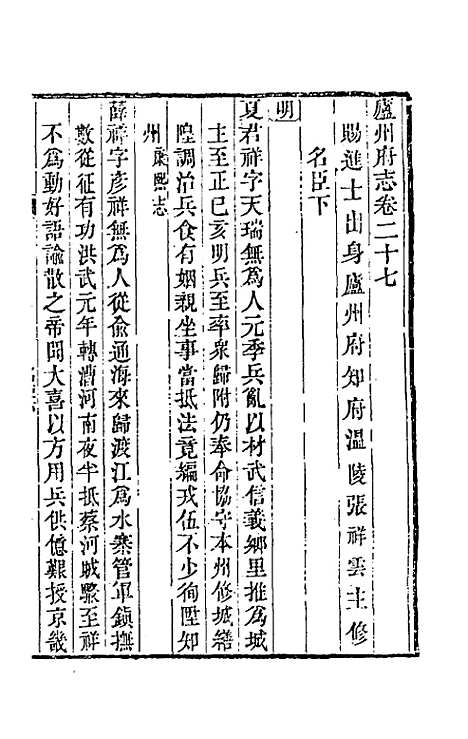 廬州府志卷二十七
賜進士出身廬州府知府溫陵張祥雲主修
名臣下
明
夏君祥字天瑞無爲人元季兵亂以材武信義鄉里推爲城
主至正巳亥明兵至率衆歸附仍奉命協守本州修城繕
隍調治兵食有姻親坐事當抵法竟編戎伍不少徇陞知
州康熙志
薛祥字彥祥無爲人從俞通海來歸渡江爲水寨管軍鎭撫
數從征有功洪武元年轉漕河南夜半抵蔡河賊驟至祥
不爲動好語諭散之帝聞大喜以方用兵供億艱授京畿